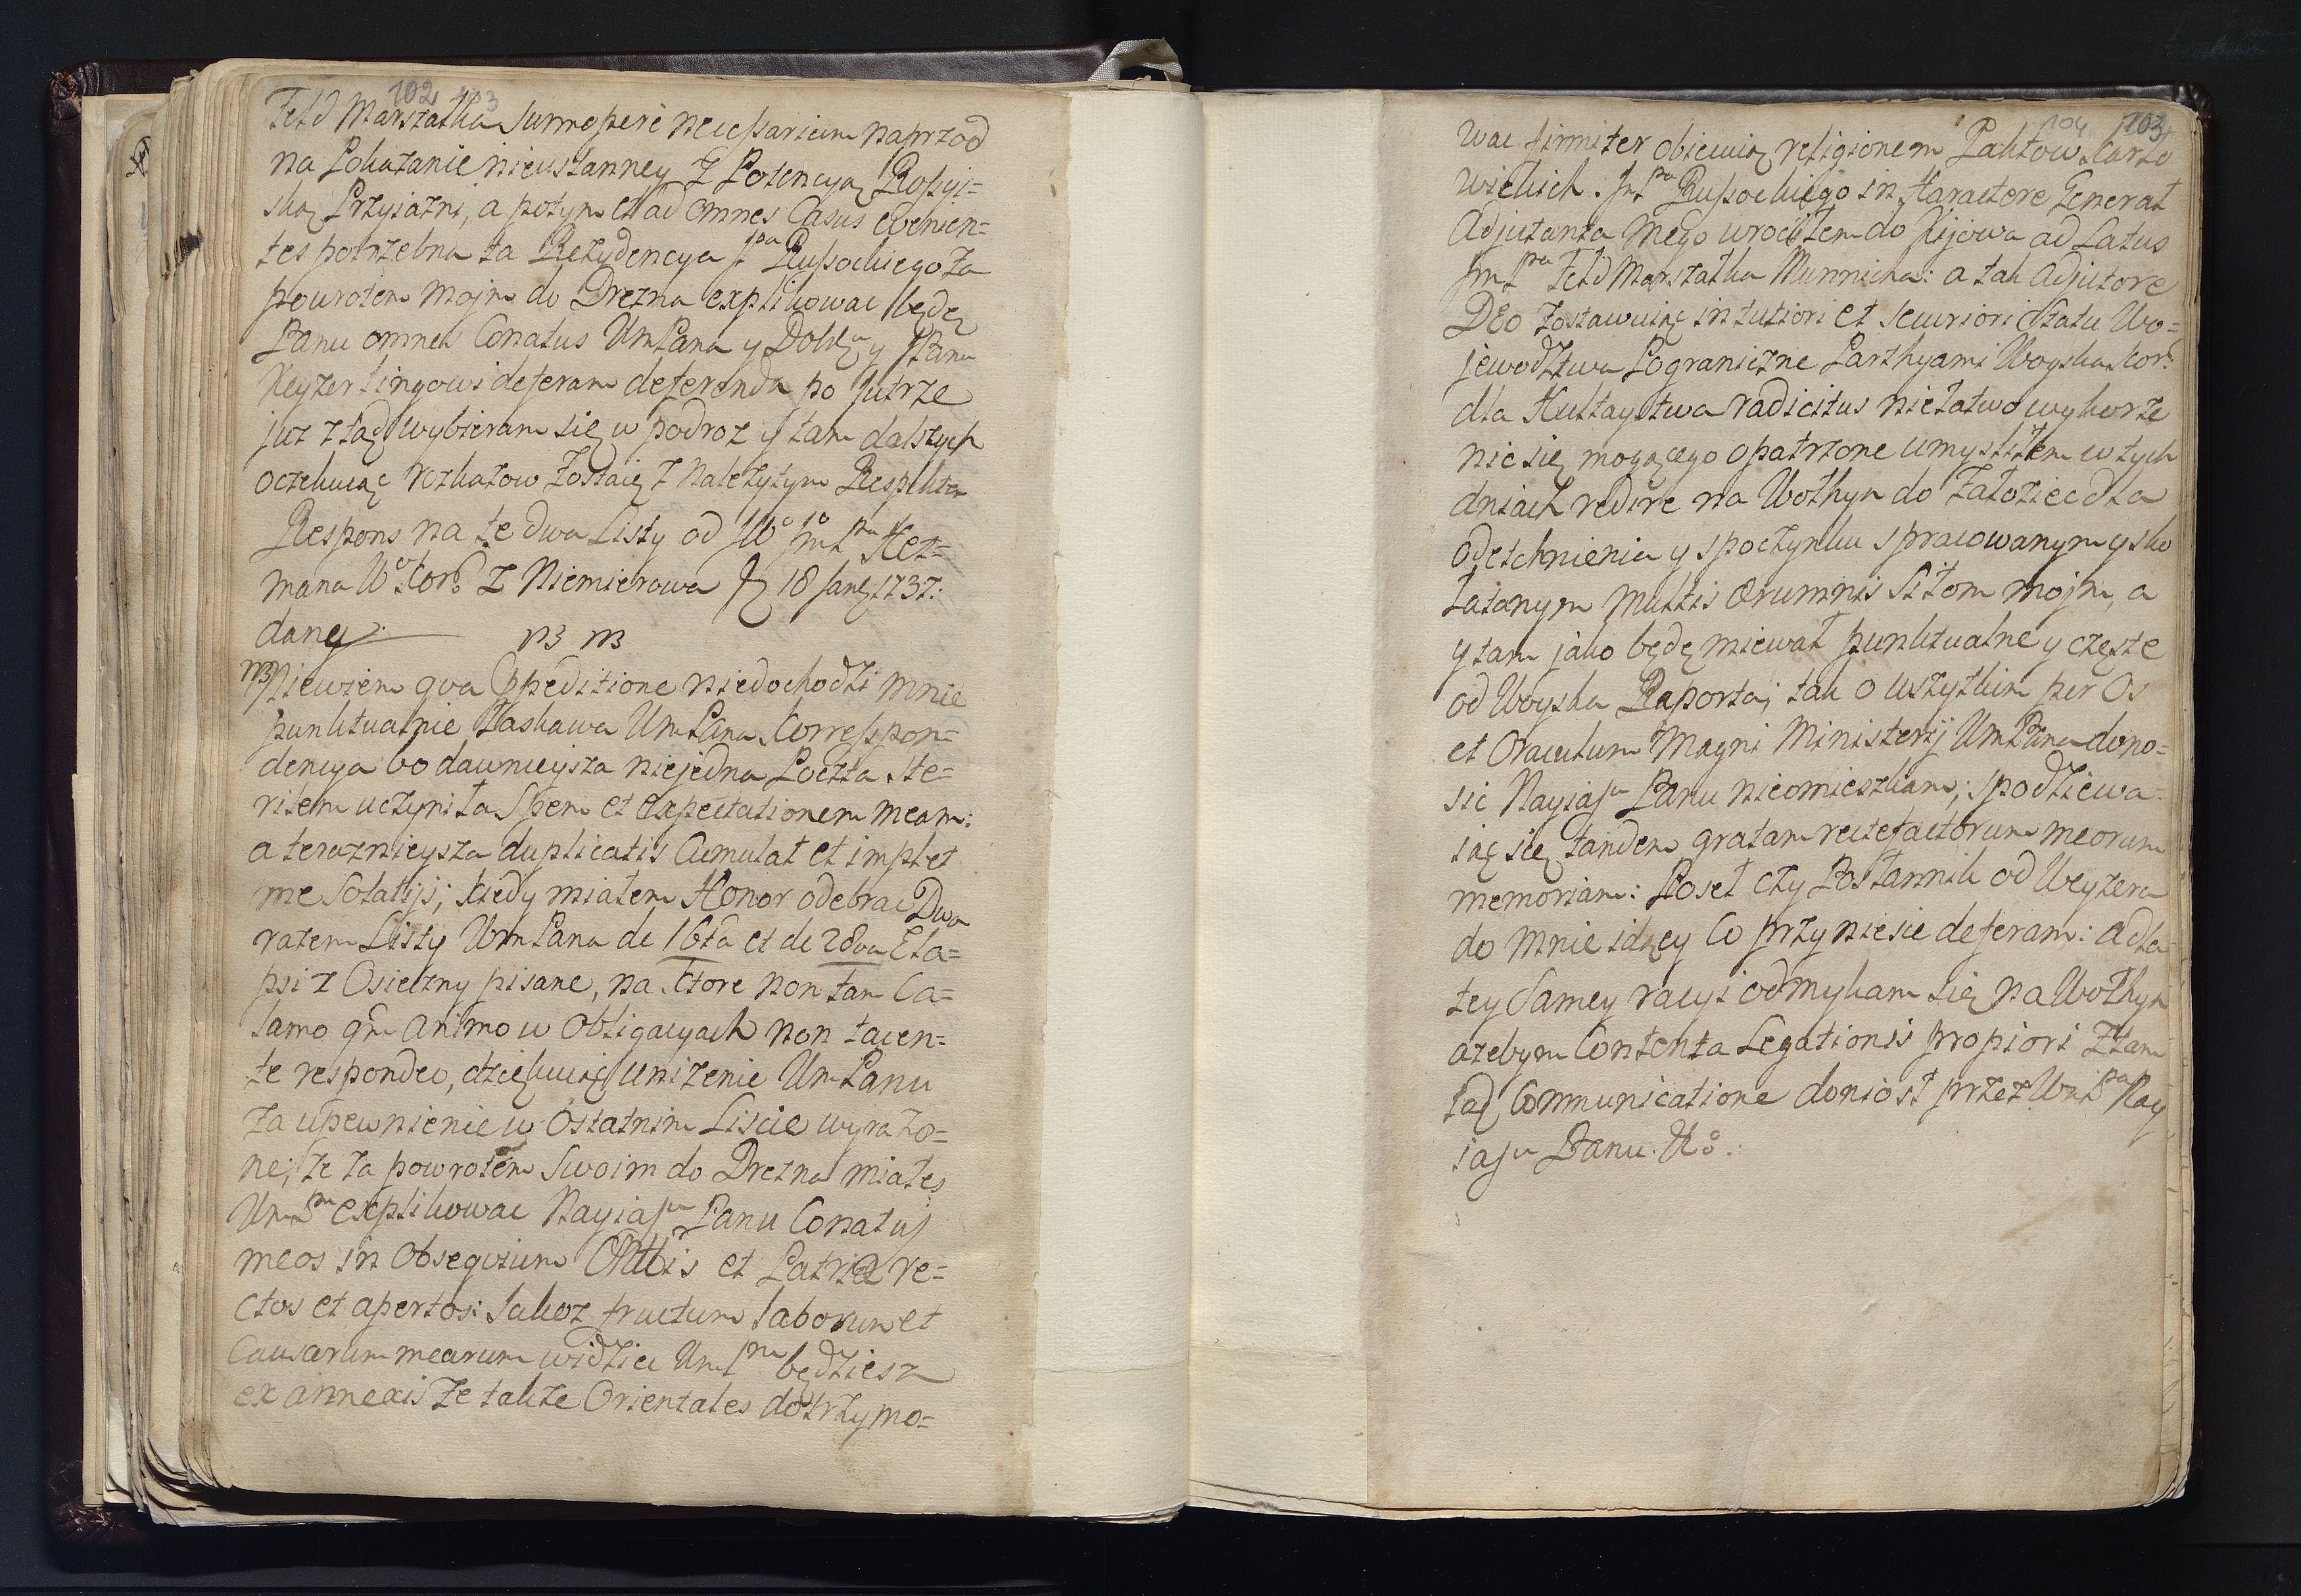 102 103
Feld Marszałka summopere necessarium naprzod
na Pokazanie nieustanney z Potencyą Rossyi=
ską Przyiazni, a potym et ad omnes Casus evenien=
tes potrzebna ta Rezydencya J pa Russockiego za
powrotem moim do Drezna explikowac będę
Panu omnes Conatus Um Pana y Dobdza y JPanu
Keyzerlingowi deferam deferenda po jutrze
juz z tąd wybieram się w podroz y tam dalszych
oczekuiąc rozkazow zostaię z nalezytym Respektem
Respons na te dwa Listy od JWo Jmć pa Het=
mana W. Kor: z Niemierowa D 18 Janu 1737:
dany.
Niewiem qva Expeditione niedochodzi mnie
punktualnie łaskawa Um Pana Correspon=
dencya bo dawnieysza niejedna Poczta ste=
rilem uczyniła Spem et expectationem meam:
a teraznieysza duplicatis Cumulat et implet
me Solatijs; kiedy miałem Honor odebrac Dwa
razem Listy Um Pana de 16ta et de 28va Ela=
psi z Osieczny pisane, na ktore non tam Ca=
lamo qm animo w Obligacyach non tacen=
te respondeo, dziękuiąc unizenie Um Panu
za upewnienie w Ostatnim Liscie wyrazo=
ne, ze za powrotem swoim do Drezna miałes
Um Pan explikowac Nayiasu Panu Conatus
meos in Obseqvium Mttis et Patriæ re=
ctos et apertos: Jakoz fructum laborum et
Causarum mearum widziec Um Pan będziesz
ex annexis ze takze Orientales dotrzymo=
104 103
wac firmiter obiecuią religionem Paktow Karlo
wickich. Jmć pa Russockiego in Haractere Generał
Adjutanta mego wrociłem do Kijowa ad Latus
Jmć pa Feld Marszałka Munnicha: a tak Adjutore
DEo zostawuiąc in tutiori et securiori Statu Wo=
jewodztwa Pograniczne Parthyami Woyska Kor:
dla Hultaystwa radicitus niełatwo wykorze
nic się mogącego opatrzone umysliłem w tych
dniach redire na Wołhyn do Załoziec dla
odetchnienia y spoczynku spracowanym y sko
łatanym multis ærumnis Siłom moim, a
y tam jako będę miewał punktualne y częste
od Woyska Raporta; tak o wszytkim per Os
et Oraculum Magni Ministerij Um Pana dono=
sic Nayiasu Panu nieomieszkam; spodziewa=
iąc się tandem gratam rectefactorum meorum
memoriam: Poseł czy Posłannik od Wezera
do mnie idący Co przyniesie deferam: a dla
tey Samey racyi odmykam się na Wołhyn
azebym Contenta Legationis propiori ztam
tąd Communicatione doniosł przez Um Pa Nay
iasu Panu. &c: